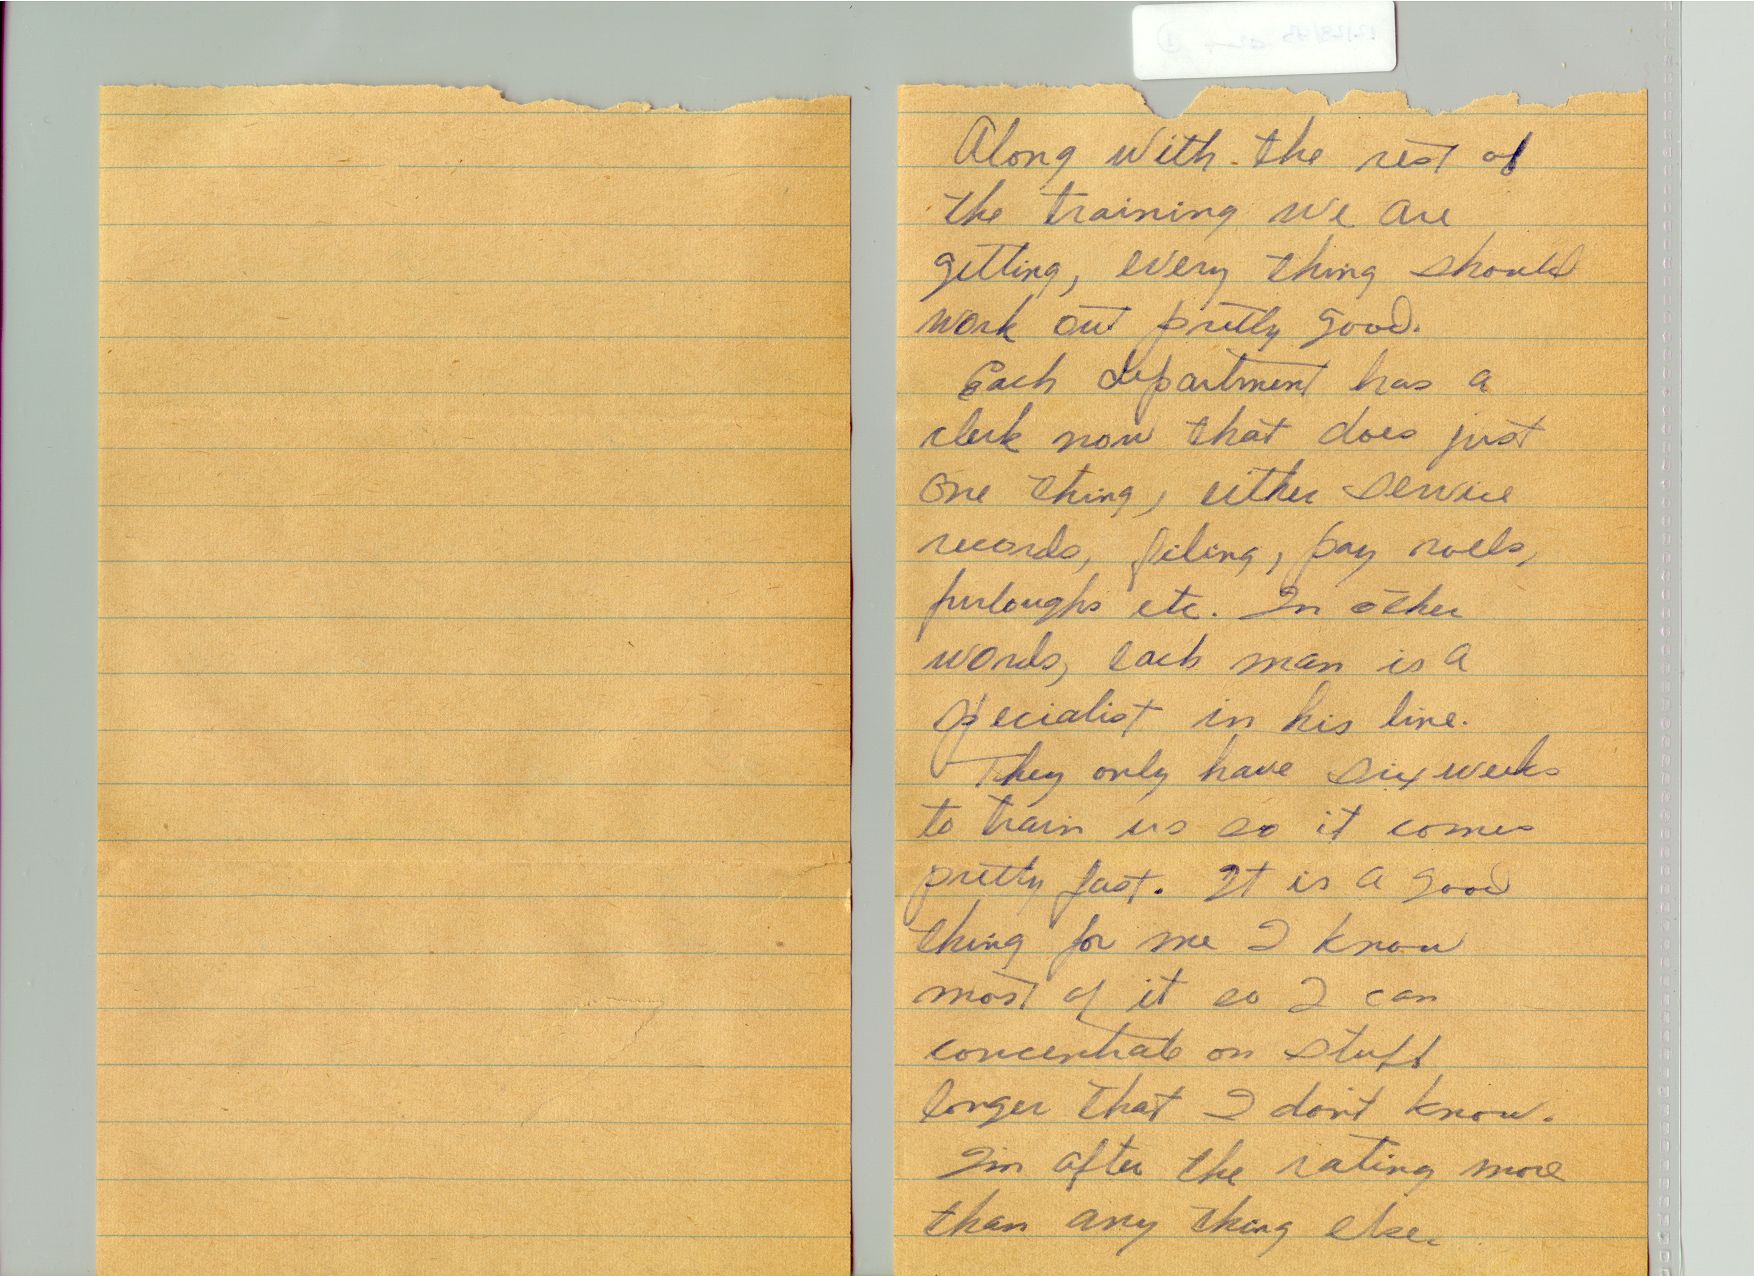 Along with the rest of
the training we are
getting, every thing should
work out pretty good.
Each department has a
clerk now that does just
one thing, either service
records, filing, pay rolls,
furloughs etc. In other
words, each man is a
specialist in his line.
They only have six weeks
to train us so it comes
pretty fast. It is a good
thing for me I know
most of it so I can
concentrate on stuff
longer that I don't know.
Im after the rating more
than any thing else.